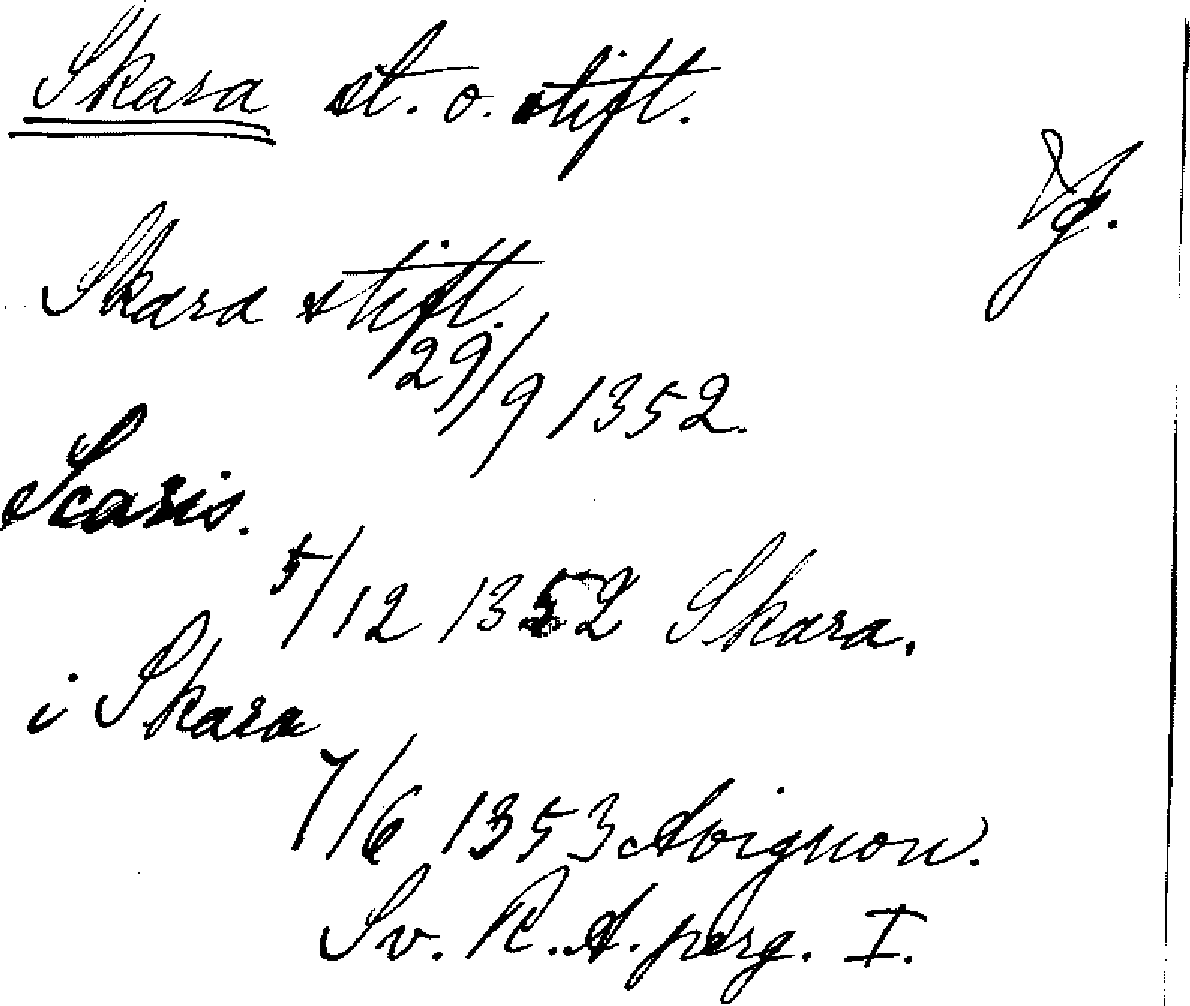 Skara st. o. stift.
Vg.
Skara stift.
29/9 1352.
Scaris.
5/12 1352 Skara.
i Skara
7/6 1353 Avignon.
Sv. R. A. perg. I.